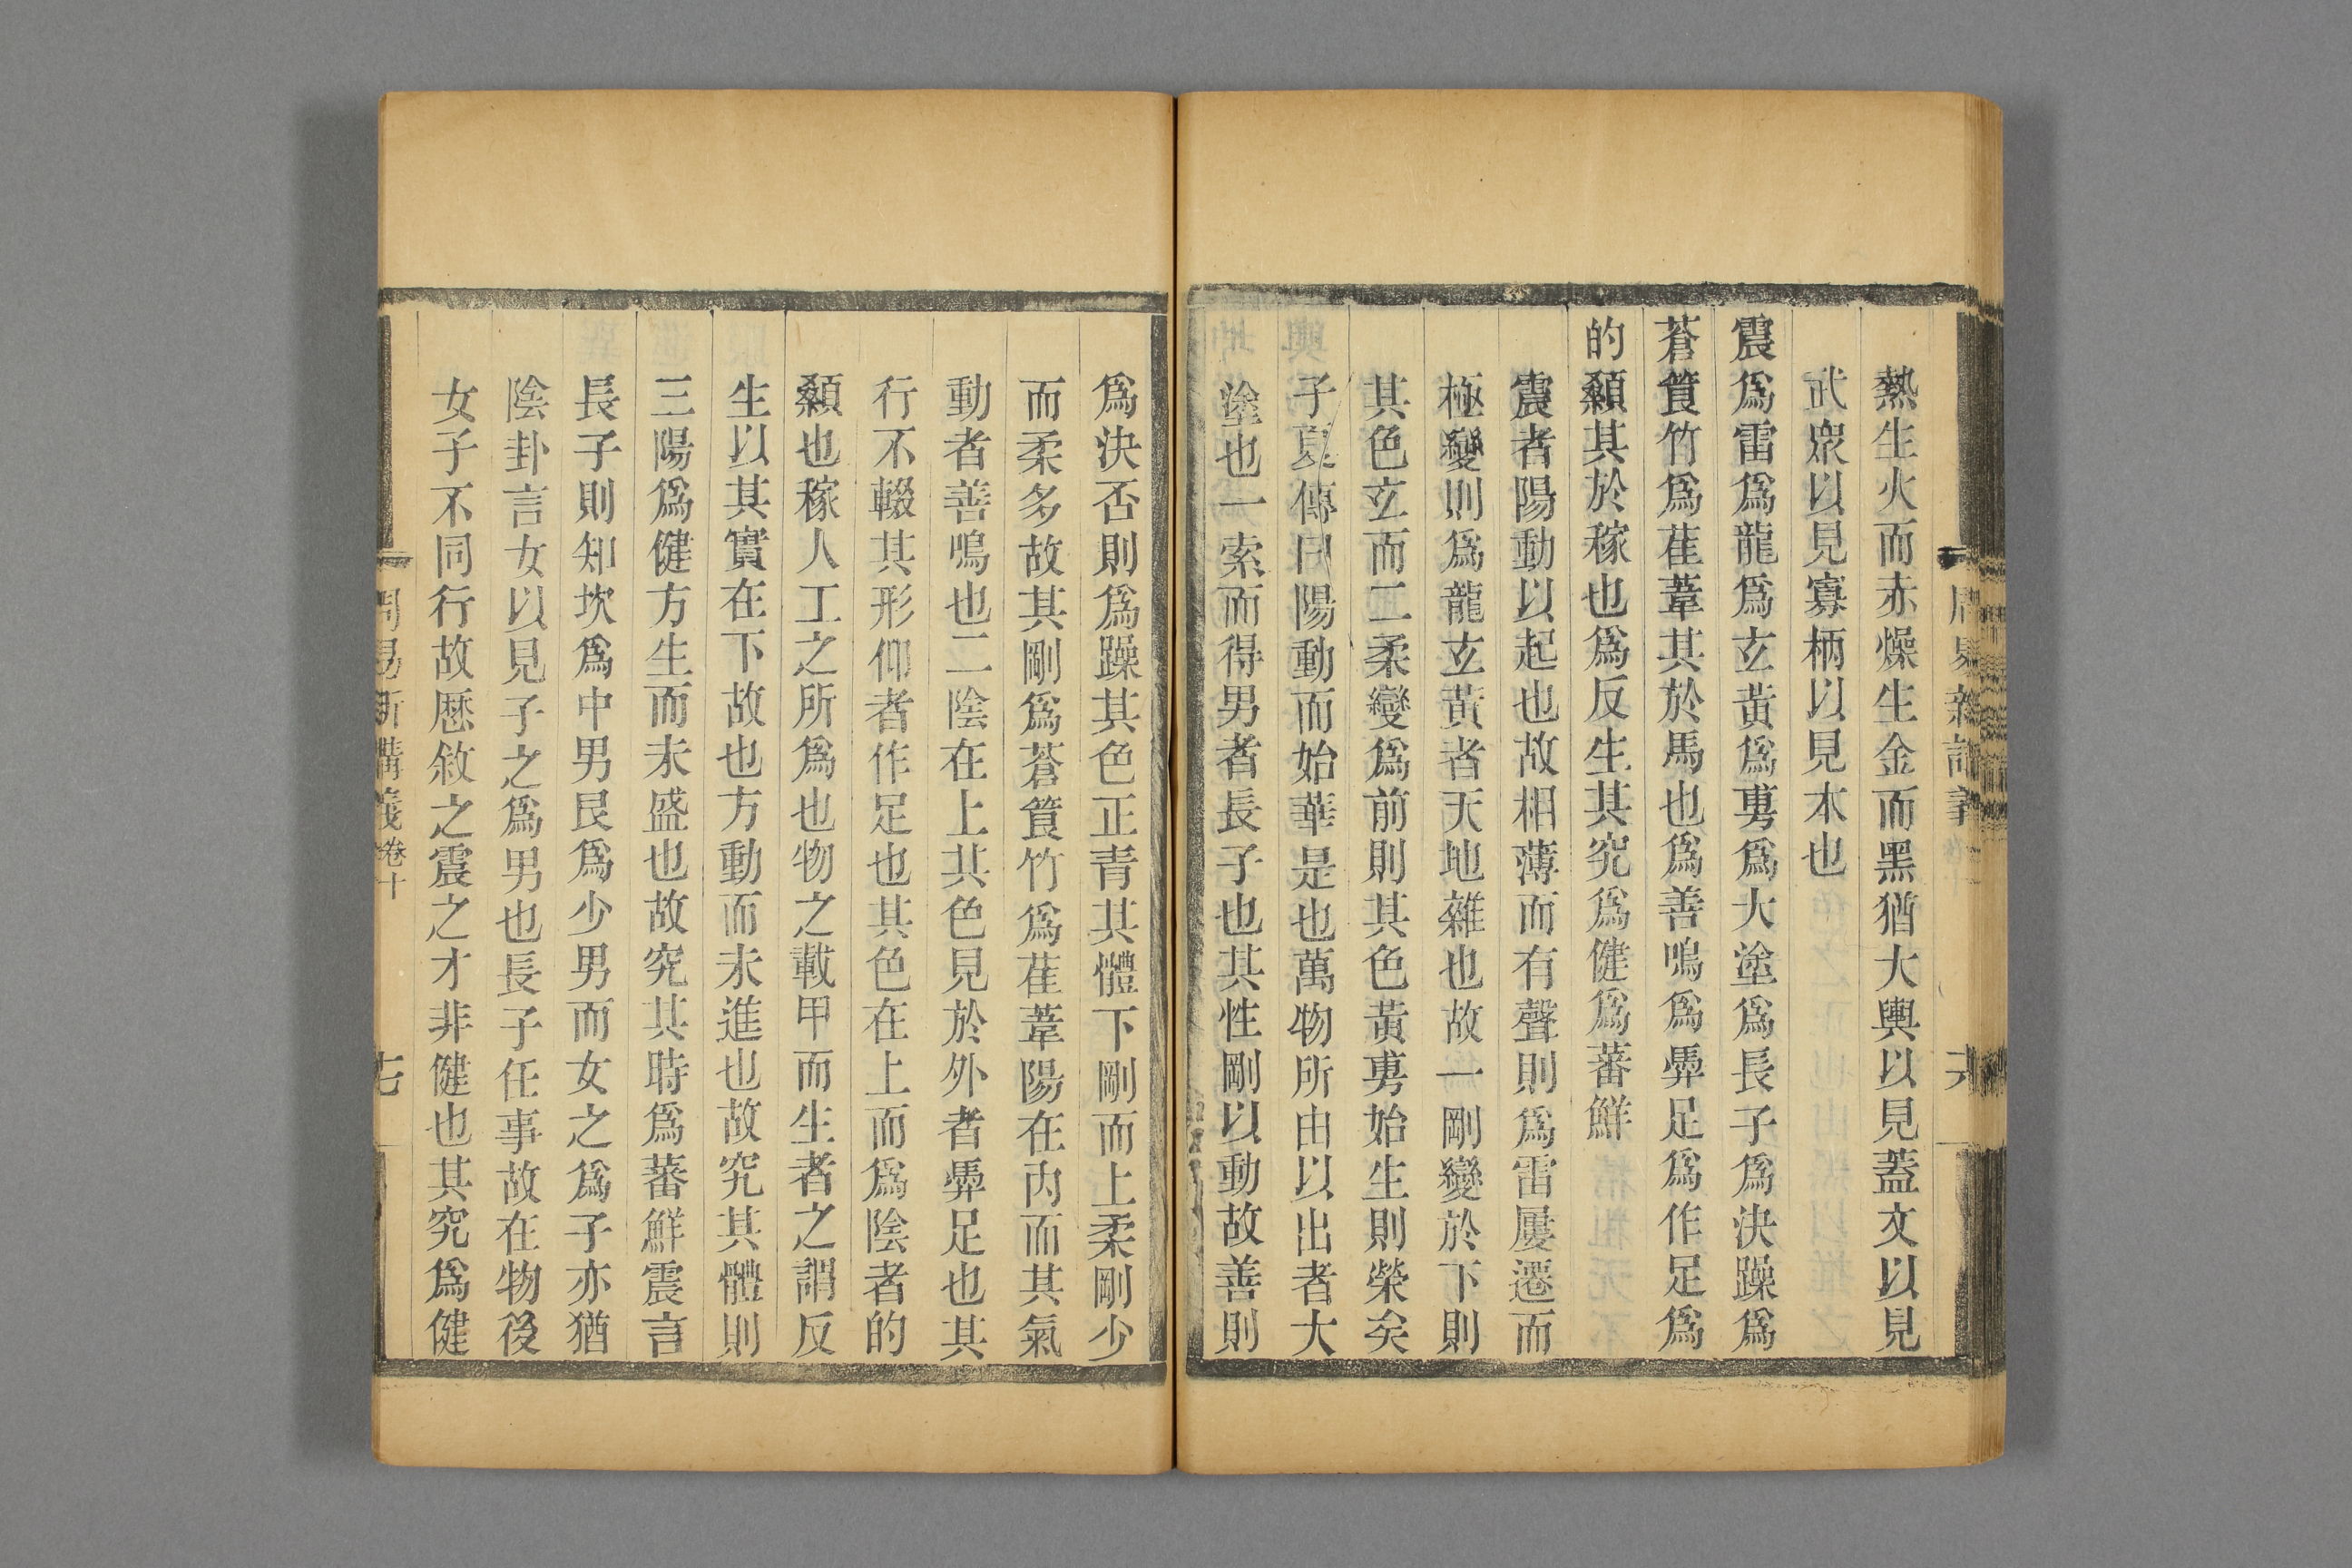 熱生火而赤燥生金而黑猶大輿以見蓋文以見
武衆以見寡柄以見本也
震爲雷爲龍爲玄黃爲旉爲大塗爲長子爲決躁爲
蒼筤竹爲萑葦其於馬也爲善鳴爲馵足爲作足爲
的顙其於稼也爲反生其究爲健爲蕃鮮
震者陽動以起也故相薄而有聲則爲雷屢遷而
極變則爲龍玄黃者天地雜也故一剛變於下則
其色玄而二柔變爲前則其色黃旉始生則榮矣
子夏傳曰陽動而始華是也萬物所由以出者大
塗也一索而得男者長子也其性剛以動故善則
爲決否則爲躁其色正青其體下剛而上柔剛少
而柔多故其剛爲蒼筤竹爲萑葦陽在內而其氣
動者善鳴也二陰在上其色見於外者馵足也其
行不輟其形仰者作足也其色在上而爲陰者的
顙也稼人工之所爲也物之載甲而生者之謂反
生以其實在下故也方動而未進也故究其體則
三陽爲健方生而未盛也故究其時爲蕃鮮震言
長子則知坎爲中男艮爲少男而女之爲子亦猶
陰卦言女以見子之爲男也長子任事故在物後
女子不同行故歷敘之震之才非健也其究爲健
周易新講義卷十
七